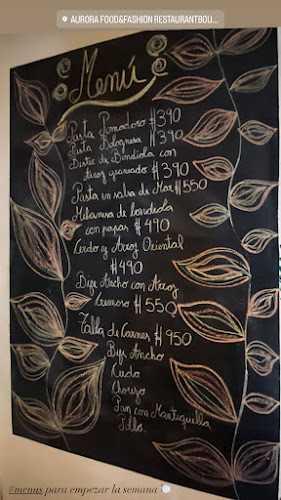 AURORA FOOD&FASHION RESTAURANTBOU...
Menú
Pasta Pomodoro $390
Pasta Bolognesa $390
Bistic de Bondiola con
Arroz graneado $390
Pasta en salsa de Mar $550
Milanesa de bondiola
con papas $490
Cerdo y Arroz Oriental
$490
Bife Ancho con Arroz
Cremoso $550
Tabla de Carnes $950
Bife Ancho
Cerdo
Chorizo
Pan con Mantequilla
Pollo.
#menus para empezar la semana